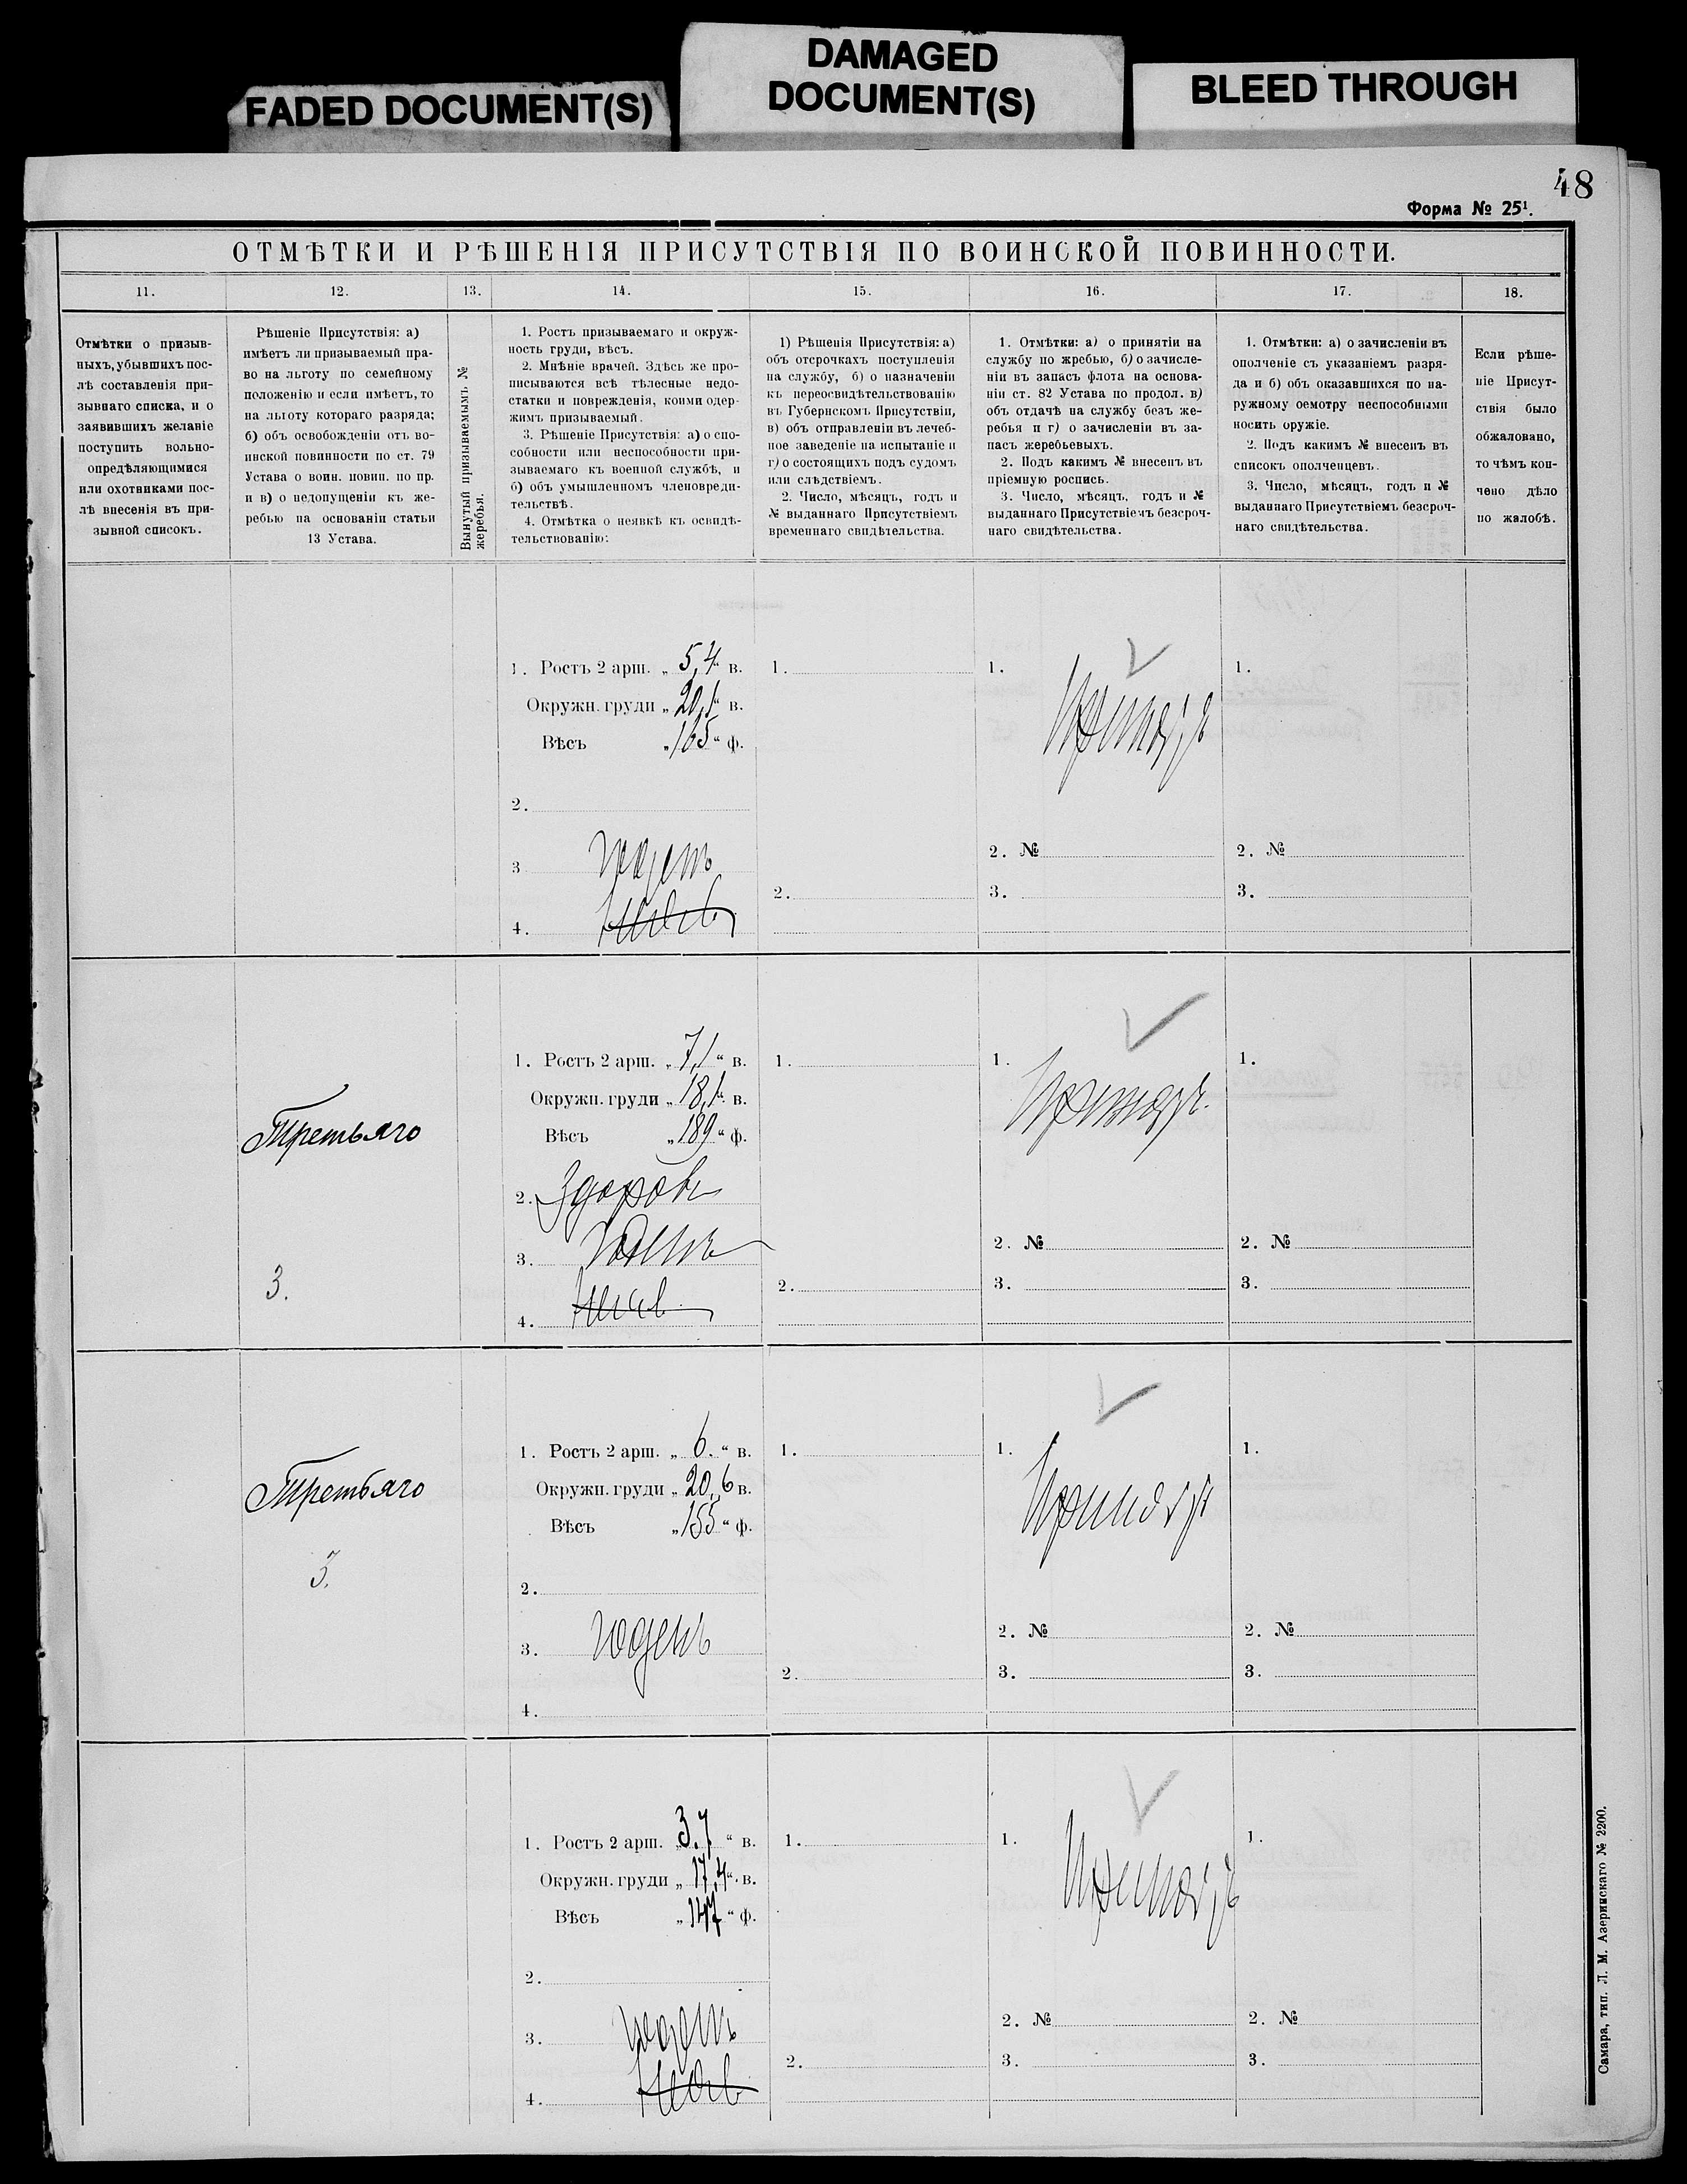 FADED DOCUMENT(S)
DAMAGED
DOCUMENT(S)
BLEED THROUGH
48
Форма № 25¹.
ОТМѢТКИ И РѢШЕНІЯ ПРИСУТСТВІЯ ПО ВОИНСКОЙ ПОВИННОСТИ.
11.
12.
13.
14.
15.
16.
17.
18.
Отмѣтки о призыв-
ныхъ, убывшихъ пос-
лѣ составленія при-
зывнаго списка, и о
заявившихъ желаніе
поступить вольно-
опредѣляющимися
или охотниками пос-
лѣ внесенія въ при-
зывной списокъ.
Рѣшеніе Присутствія: а)
имѣетъ ли призываемый пра-
во на льготу по семейному
положенію и если имѣетъ, то
на льготу котораго разряда;
б) объ освобожденіи отъ во-
инской повинности по ст. 79
Устава о воин. повин. по пр.
и в) о недопущеніи къ же-
ребью на основаніи статьи
13 Устава.
Вынутый призываемымъ №
жеребья.
1. Ростъ призываемаго и окруж-
ность груди, вѣсъ.
2. Мнѣніе врачей. Здѣсь же про-
писываются всѣ тѣлесные недо-
статки и поврежденія, коими одер-
жимъ призываемый.
3. Рѣшеніе Присутствія: а) о спо-
собности или неспособности при-
зываемаго къ военной службѣ, и
б) объ умышленномъ членовреди-
тельствѣ.
4. Отмѣтка о неявкѣ къ освидѣ-
тельствованію:
1) Рѣшенія Присутствія: а)
объ отсрочкахъ поступленія
на службу, б) о назначеніи
къ переосвидѣтельствованію
въ Губернскомъ Присутствіи,
в) объ отправленіи въ лечеб-
ное заведеніе на испытаніе и
г) о состоящихъ подъ судомъ
или слѣдствіемъ.
2. Число, мѣсяцъ, годъ и
№ выданнаго Присутствіемъ
временнаго свидѣтельства.
1. Отмѣтки: а) о принятіи на
службу по жребью, б) о зачисле-
ніи въ запасъ флота на основа-
ніи ст. 82 Устава по продол. в)
объ отдачѣ на службу безъ же-
ребья и г) о зачисленіи въ за-
пасъ жеребьевыхъ.
2. Подъ какимъ № внесенъ въ
пріемную роспись.
3. Число, мѣсяцъ, годъ и №
выданнаго Присутствіемъ безсроч-
наго свидѣтельства.
1. Отмѣтки: а) о зачисленіи въ
ополченіе съ указаніемъ разря-
да и б) объ оказавшихся по на-
ружному осмотру неспособными
носить оружіе.
2. Подъ какимъ № внесенъ въ
списокъ ополченцевъ.
3. Число, мѣсяцъ, годъ и №
выданнаго Присутствіемъ безсроч-
наго свидѣтельства.
Если рѣше-
ніе Присут-
ствія было
обжаловано,
то чѣмъ кон-
чено дѣло
по жалобѣ.
1. Ростъ 2 арш. „ 5,4 “ в.
Окружн. груди „ 20,1 “ в.
Вѣсъ „ 165 “ ф.
2.
3 Годенъ
4.
1.
2.
1. Принятъ
2. №
3.
1.
2. №
3.
Третьяго
3.
1. Ростъ 2 арш. „ 7,1 “ в.
Окружн. груди „ 18,1 “ в.
Вѣсъ „ 189 “ ф.
2. Здоровъ
3. Годенъ
4.
1.
2.
1. Принятъ.
2. №
3.
1.
2. №
3.
Третьяго
3.
1. Ростъ 2 арш. „ 6. “ в.
Окружн. груди „ 20,6 в.
Вѣсъ „ 155 “ ф.
2.
3. Годенъ
4.
1.
2.
1. Принятъ
2. №
3.
1.
2. №
3.
1. Ростъ 2 арш. „ 3.7 “ в.
Окружн. груди „ 17,4 “ в.
Вѣсъ „ 147 “ ф.
2.
3. Годенъ
4.
1.
2.
1. Принятъ
2. №
3.
1.
2. №
3.
Самара, тип. Л. М. Азеринскаго № 2200.